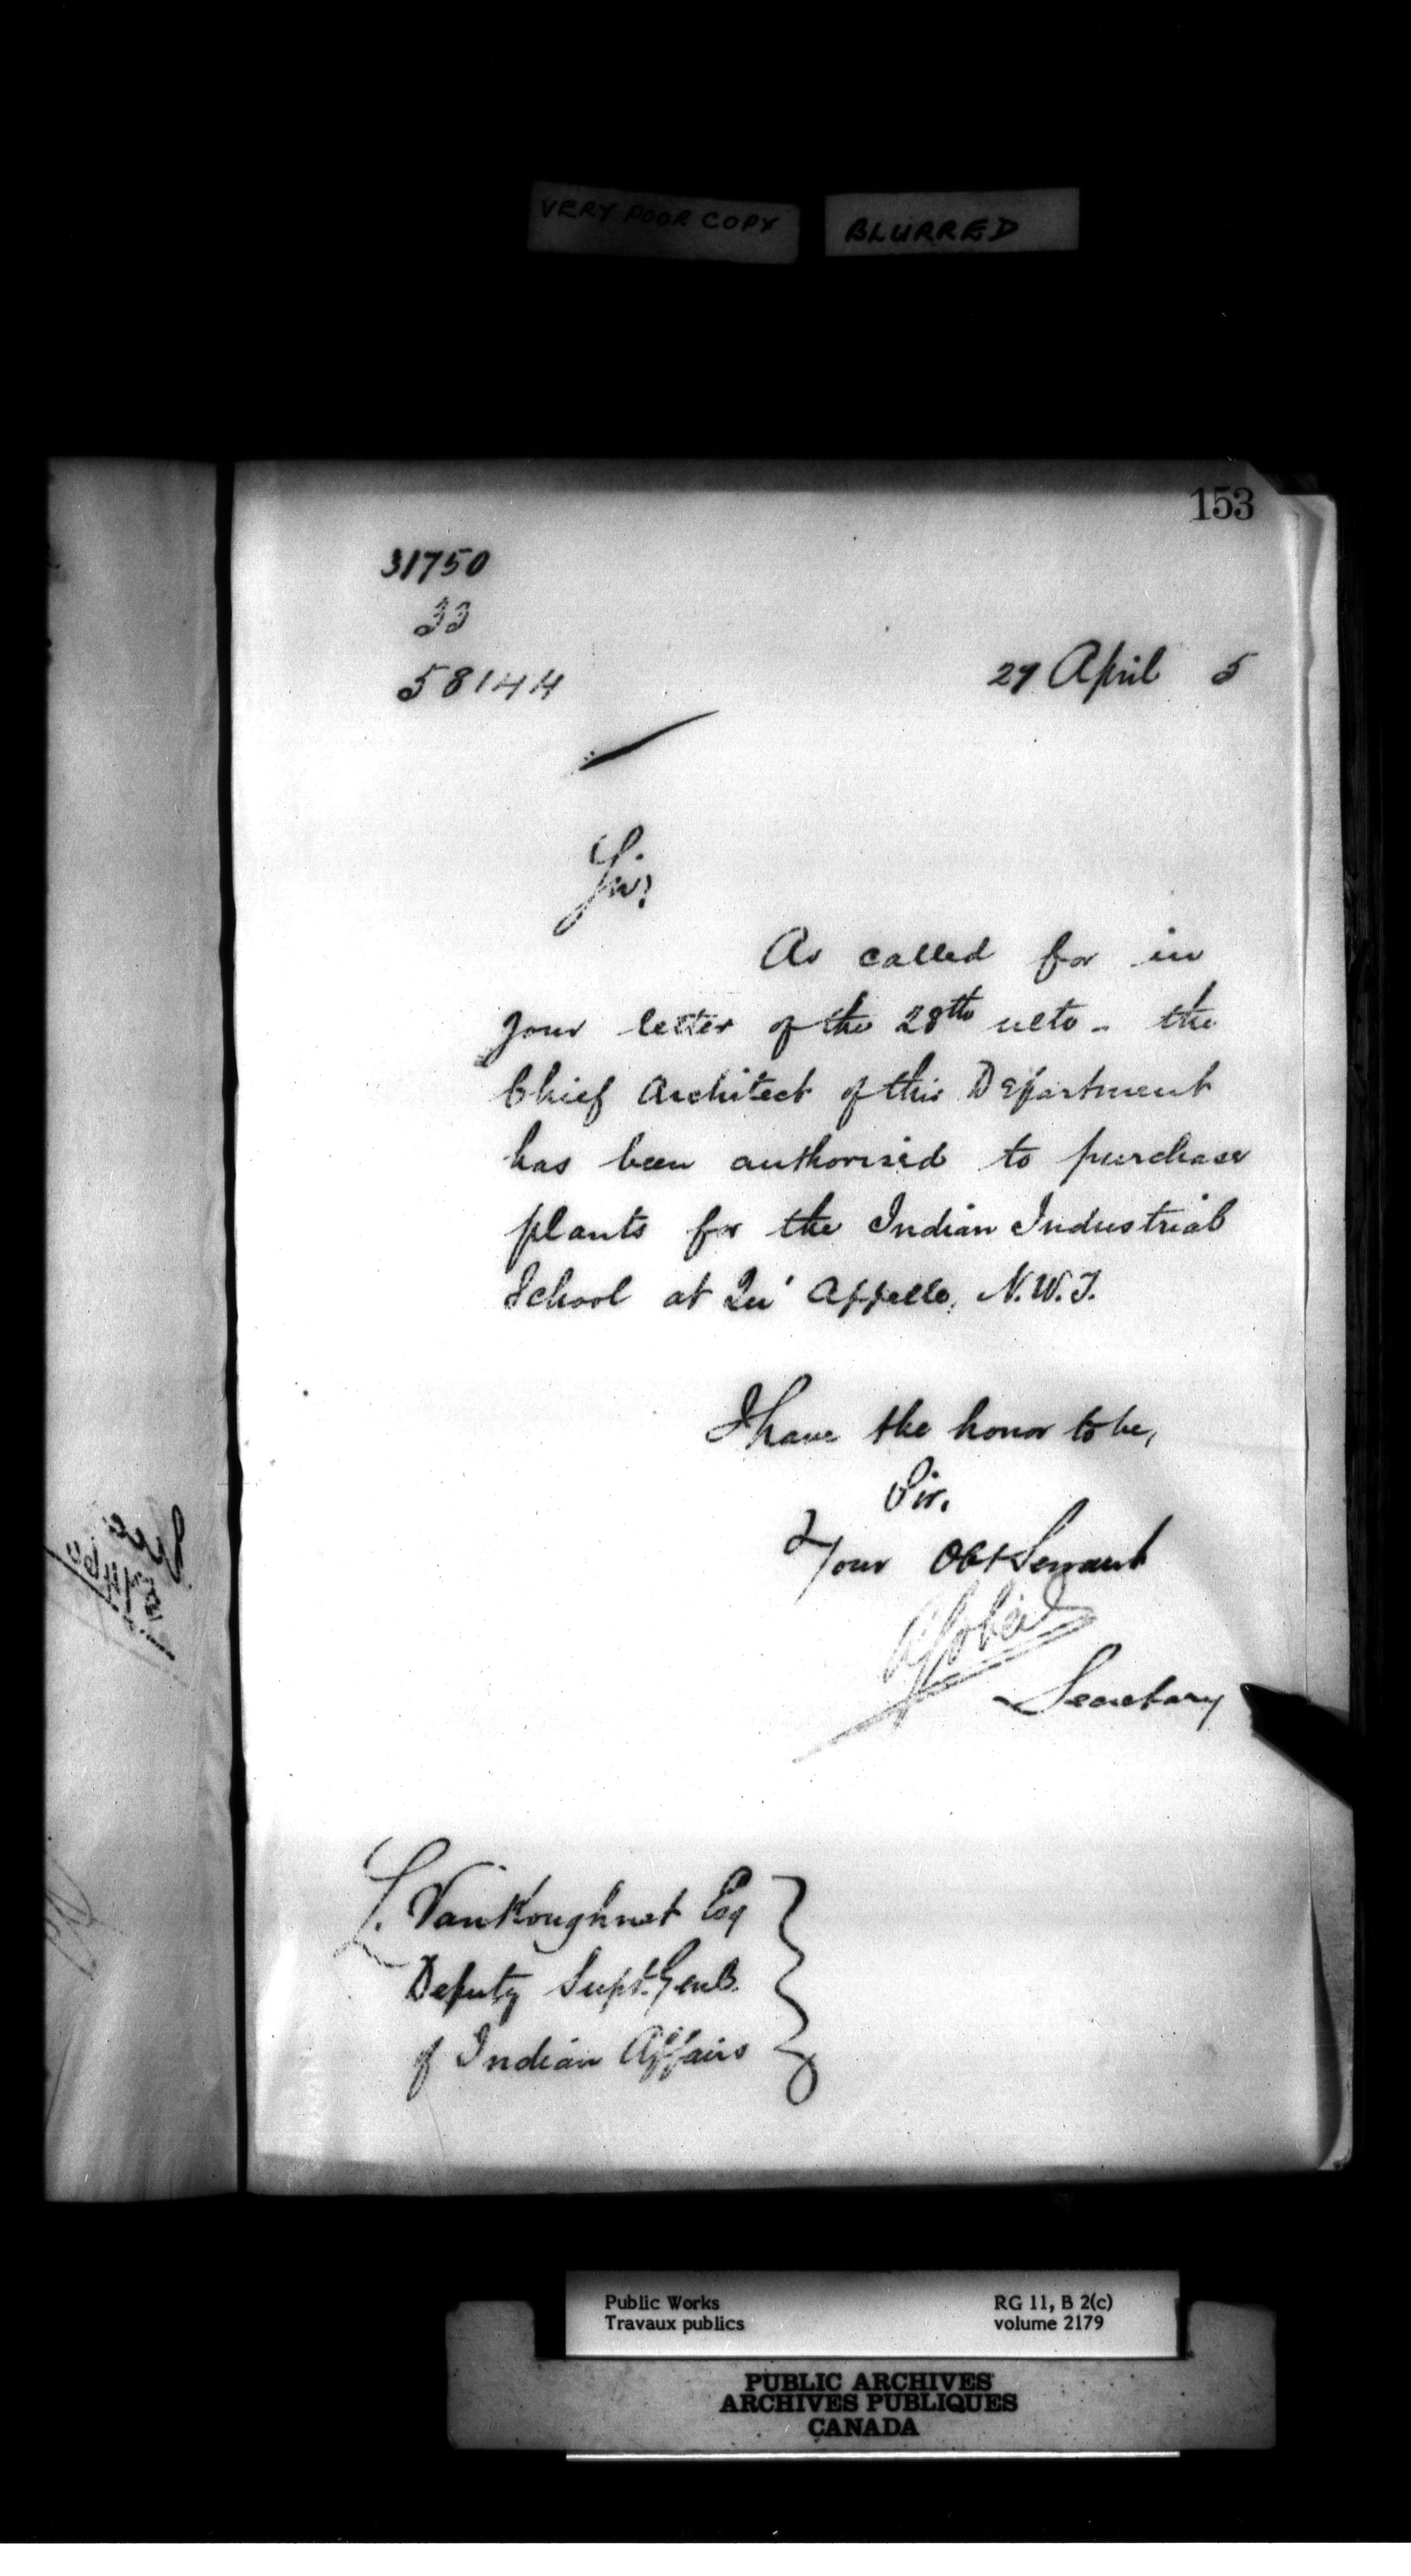 VERY POOR COPY BLURRED
153
31750
33
58144
29 April 5
Sir,
As called for in
your letter of the 28th ulto - the
Chief Architect of this Department
has been authorised to purchase
plants for the Indian Industrial
School at Qu' Appelle, N.W.T.
I have the honor to be,
Sir.
Your Obt Servant
A Gobeil
Secretary
L. VanKoughnet Esq
Deputy Supt. Genl.
of Indian Affairs
Public Works RG 11, B 2(c)
Travaux publics volume 2179
PUBLIC ARCHIVES
ARCHIVES PUBLIQUES
CANADA